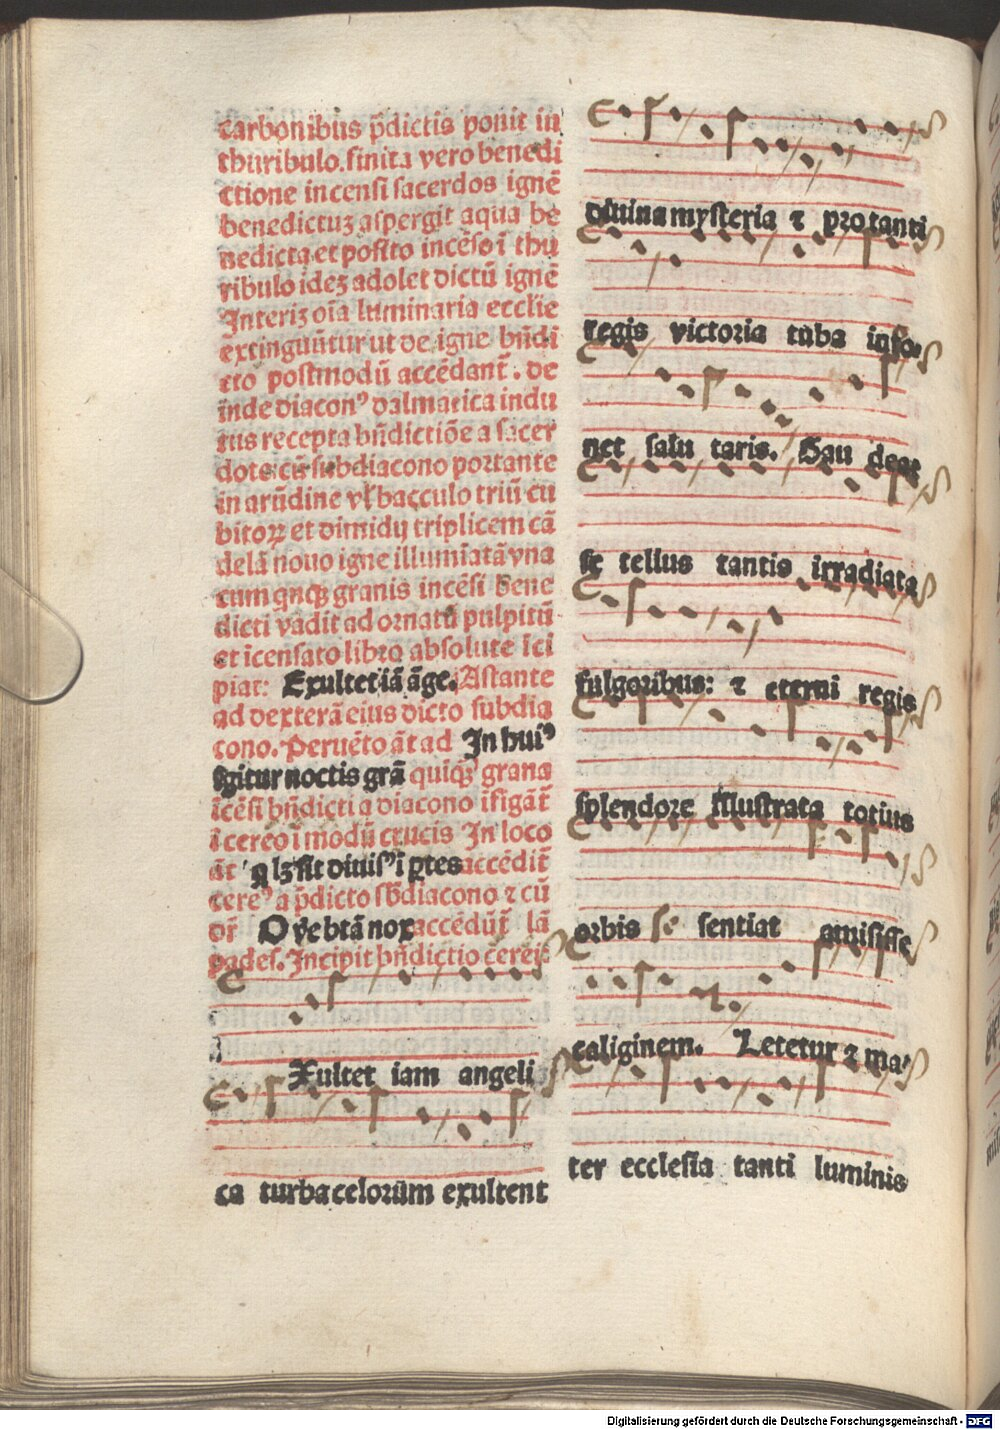 carbonibus p̄dictis ponit in
thuribulo. finita vero benedi
ctione incensi sacerdos ignē
benedictuꝫ aspergit aqua be
nedicta et posito incēso ī thu
ribulo ideꝫ adolet dictū ignē
Interiꝫ oīa luminaria ecclīe
extinguūtur ut de igne bñdi
cto postmodū accēdant̄. de
inde diaconꝰ dalmatica indu
tus recepta bñdictiōe a sacer
dote cū subdiacono portante
in arūdine vl̄ bacculo triū cu
bitoꝝ et dimidij triplicem cā
delā nouo igne illumīatā vna
cum qnqꝫ granis incēsi bene
dicti vadit ad ornatū pulpitū
et īcensato libro absolute īci
piat: Exultet iā āge. Astante
ad dexterā eius dicto subdia
cono. Peruēto āt ad In huiꝰ
igitur noctis grā quiqꝫ grana
īcēsi bñdicti a diacono īfigāt̄
ī cereo ī modū crucis In loco
āt q lꝫ sit diuisꝰ ī ꝑtes accēdit̄
cereꝰ a p̄dicto sb̄diacono ⁊ cū
dr̄ O ve btā nox accēdūt̄ lā
pades. Incipit bñdictio cerei:
Xultet iam angeli
ca turba celorūm exultent
diuina mysteria ⁊ pro tanti
regis victoria tuba inso⸗
net salu taris. Gau deat
se tellus tantis irradiata
fulgoribus: ⁊ eterni regis
splendore illustrata totius
orbis se sentiat amisisse
caliginem. Letetur ⁊ ma⸗
ter ecclesia tanti luminis
Digitalisierung gefördert durch die Deutsche Forschungsgemeinschaft - DFG